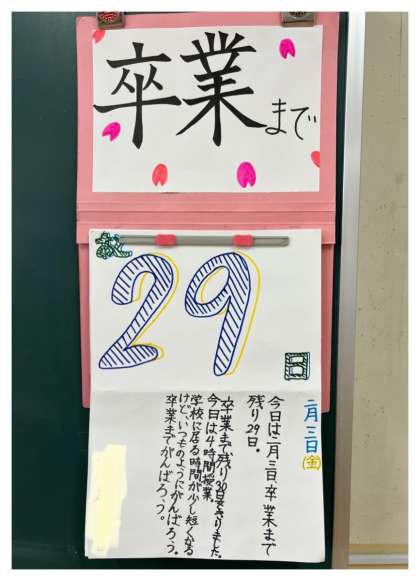 卒業まで
残
29
日
二月三日(金)
今日は二月三日、卒業まで
残り29日。
卒業まで残り30日をきりました。
今日は4時間授業。
学校に居る時間が少し短くなる
けど、いつものようにがんばろう。
卒業までがんばろう。